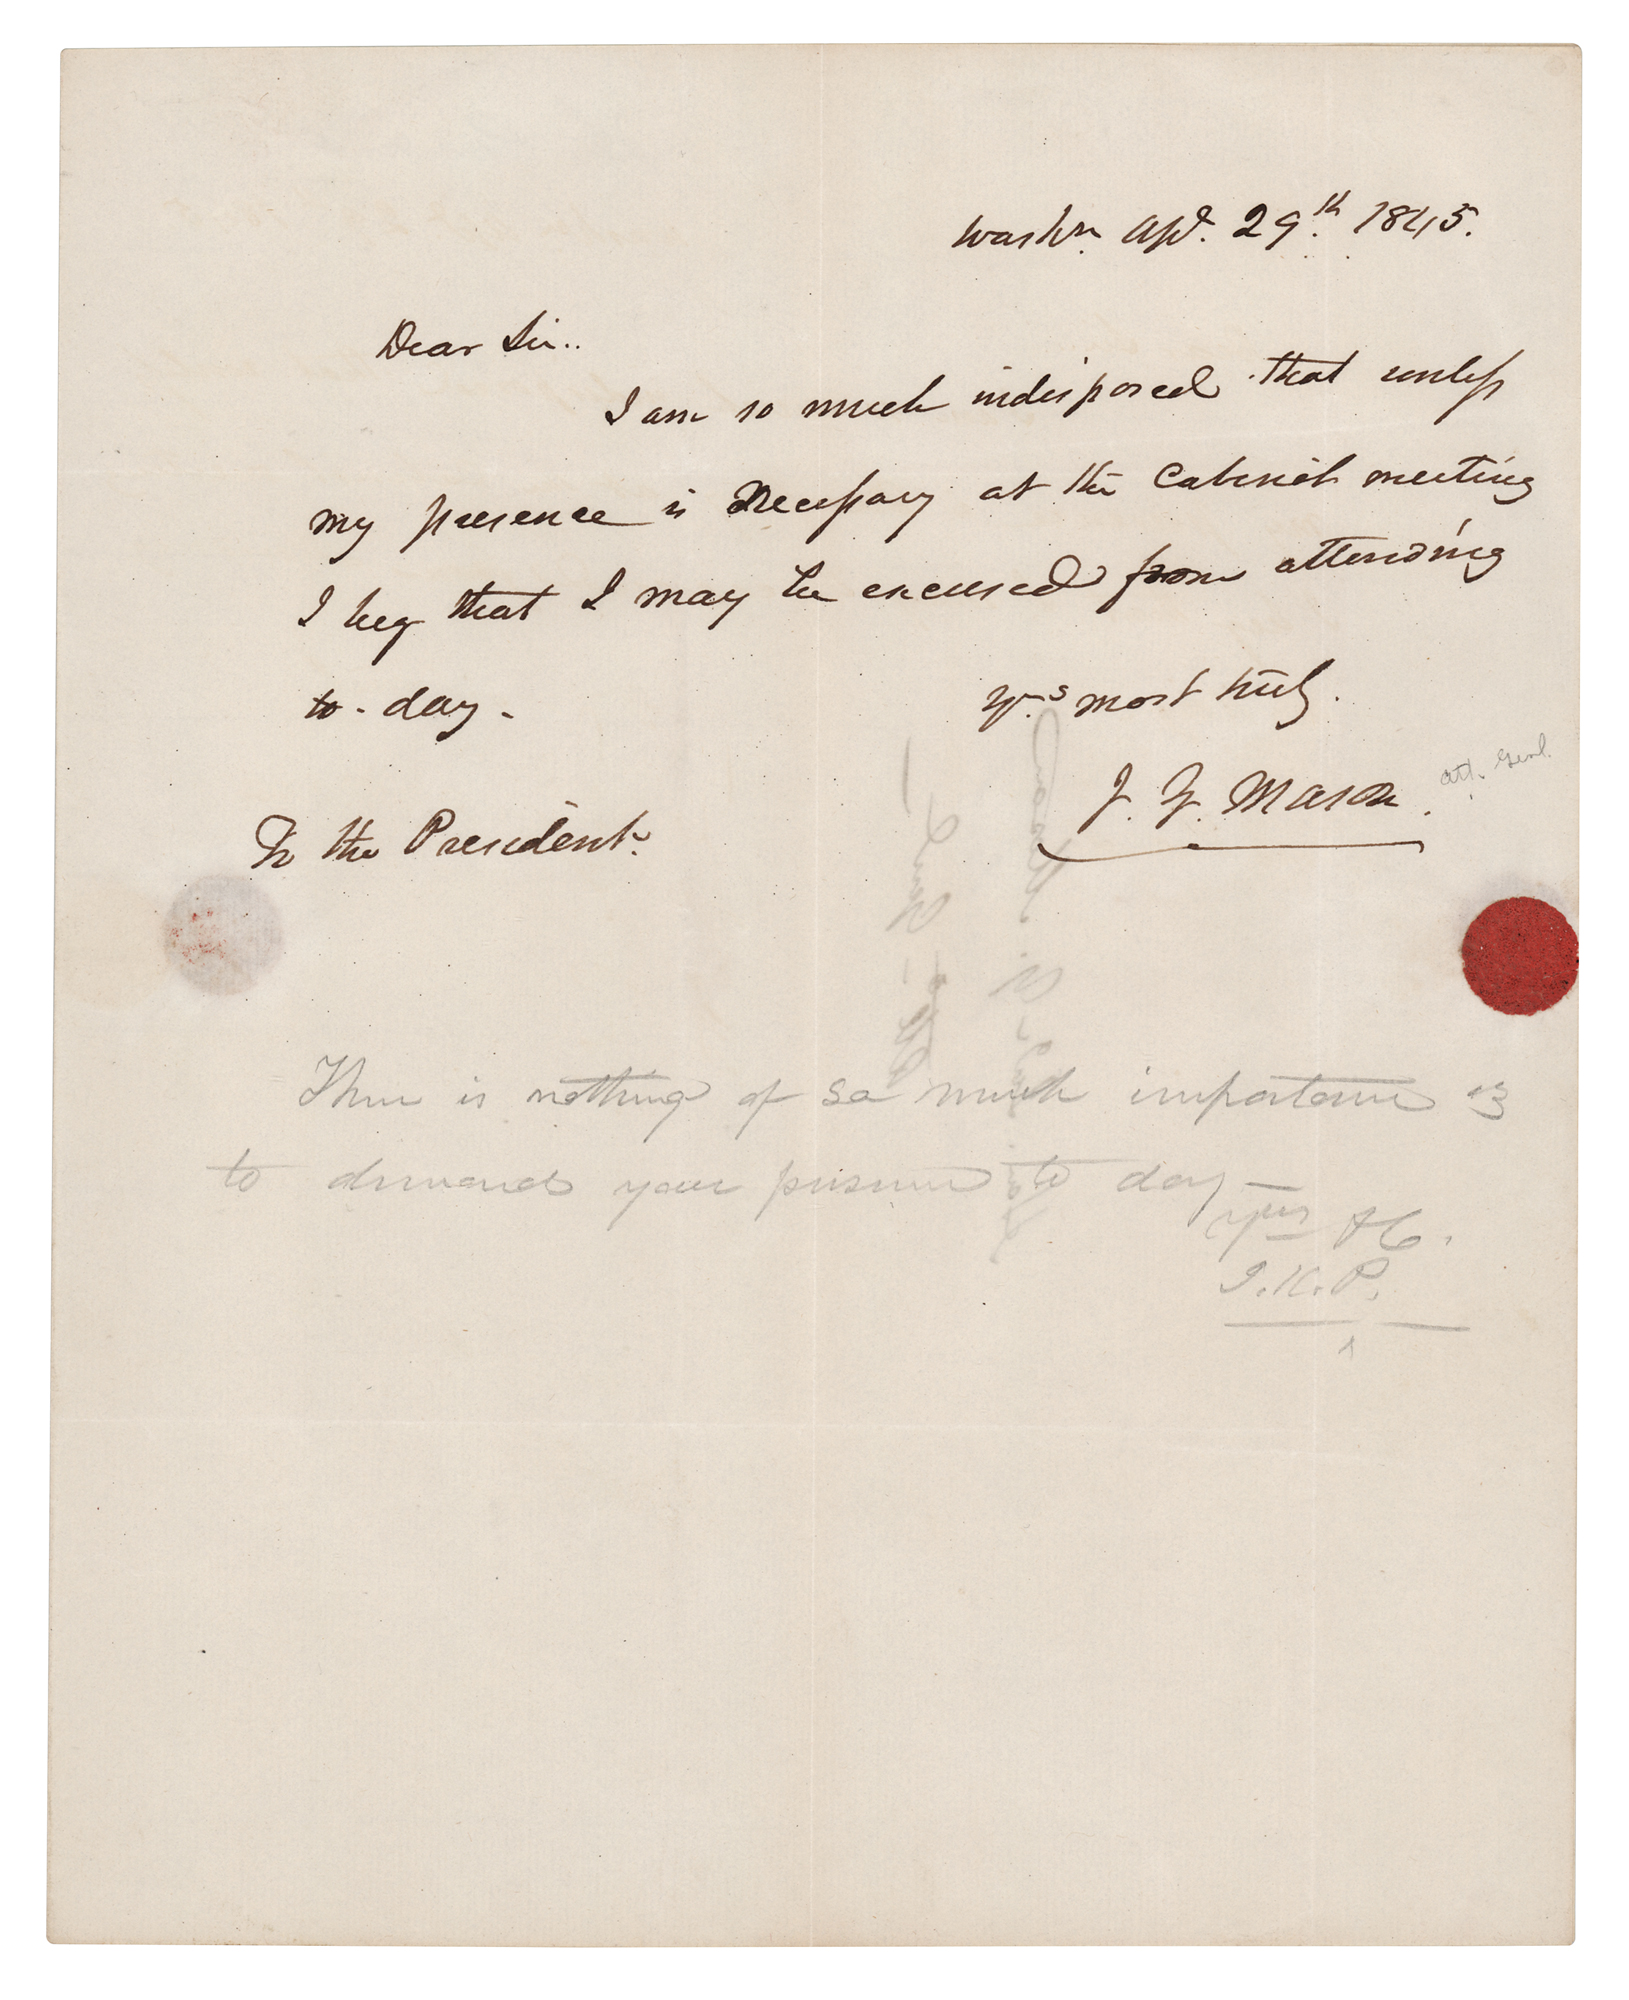 Washn. Apl. 29th. 1845.
Dear Sir..
I am so much indisposed that unless
my presence is necessary at the Cabinet meeting
I beg that I may be excused from attending
to-day.
Yrs most truly.
J. Y. Mason.
Att. Genl.
To the President.
There is nothing of so much importance as
to demand your presence to day—
Yours &C.
J.K.P.